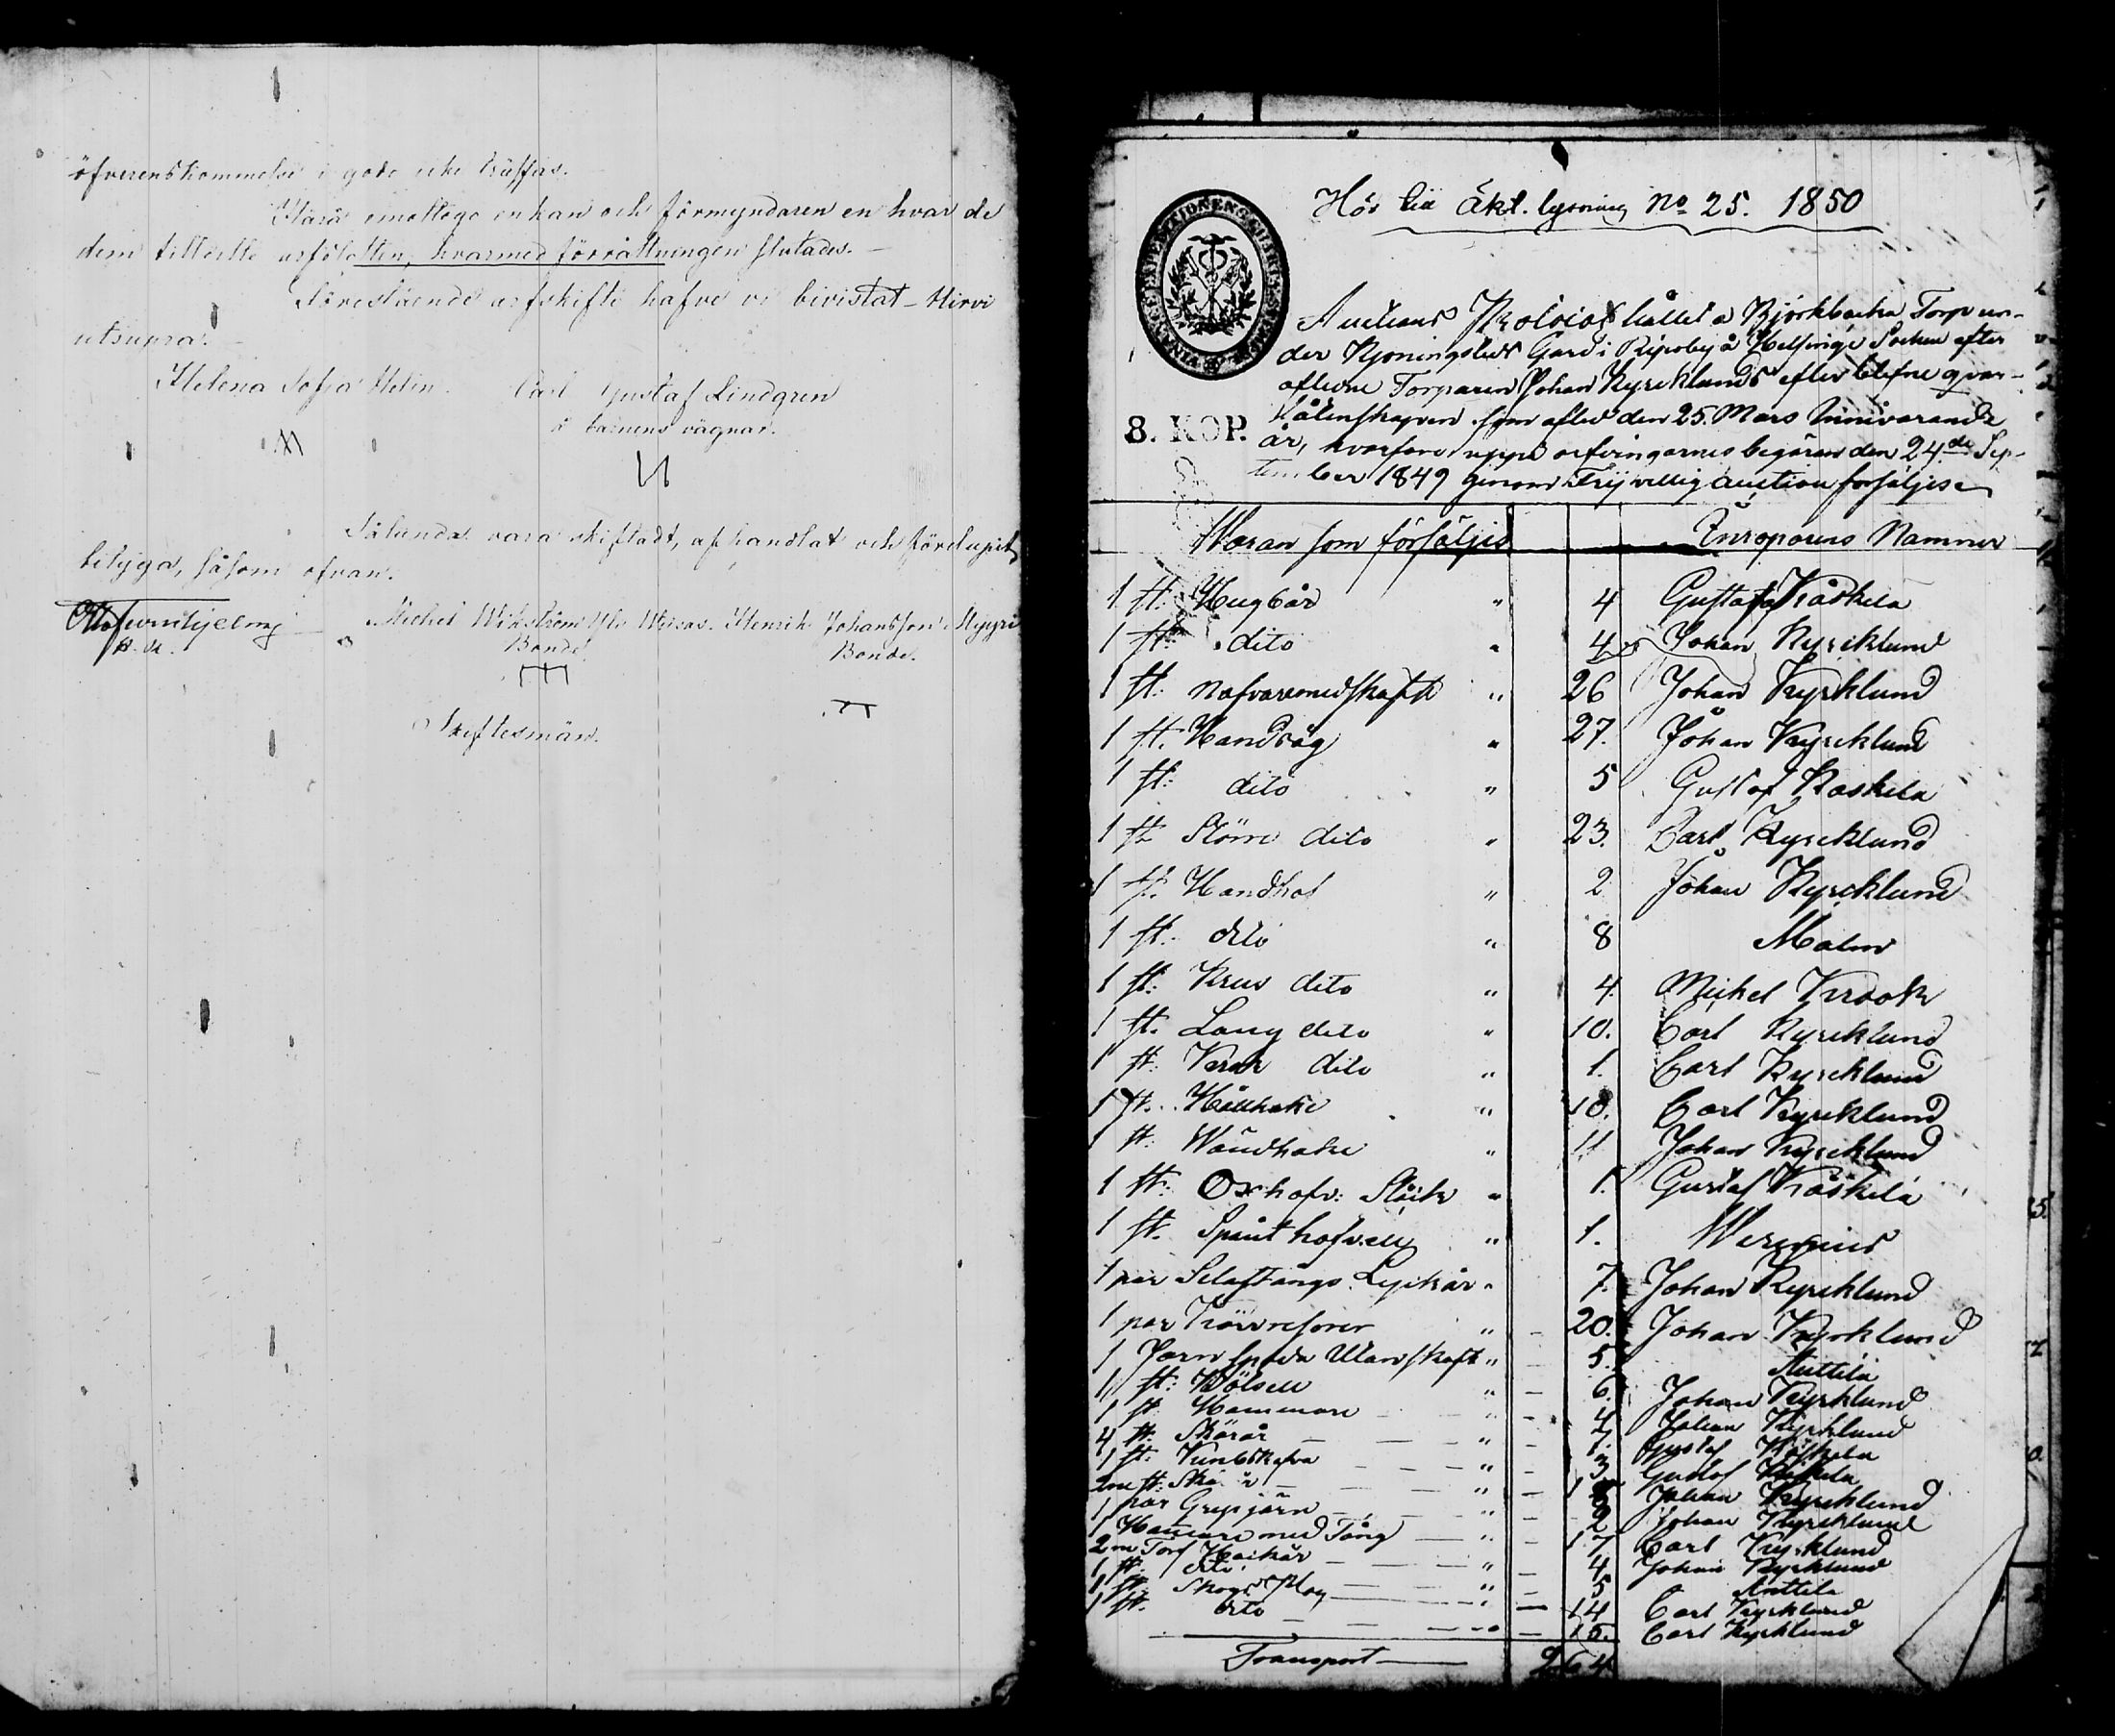 öfverenskommelse i godo icke träffas.
Härå emottogo enkan och förmyndaren en hvar de
dem tilldelte arfslotten, hvarmed förrättningen slutades.
Förestående arfskifte hafve vi bivistat Hirvi
utsupra.
Helena Sofia Helin. Carl Gustaf Lindgren
å barnens vägnar.
Sålunda vara skiftadt, afhandlat och förelupit,
betyga, såsom ofvan.
Michel Wikström Henrik Johansson Myyri
Bonde. Bonde.
Skiftesmän.
Hör till Äkt. lysning No 25. 1850
Auctions Protocol hållet å Björkbacka Torp un-
der Kjoningstedt Gård i Ripuby å Helsinge Socken efter
aflidne Torparen Johan Kyrcklunds efterblefne qvar-
låtenskapen som afled den 25. Mars innivarande
8. KOP.
år, hvarföre uppå arfvingarnes begäran den 24de Sep-
tember 1849 genom Frijvillig auction forsäljes
Waran som försäljes Inroparens Namner
1 st: Hugbår " 4 Gustaf Kåskela
1 st: dito " 4 Johan Kyrcklund
1 st: Nafvare med skaft " 26 Johan Kyrklund
1 st. Handsåg " 27. Johan Kyrcklund
1 st: dito " 5 Gustaf Kaskela
1 st Större dito " 23. Carl Kyrcklund
1 st. Handhof " 2 Johan Kyrcklund
1 st. dito " 8 Malm
1 st: Krus dito " 4. Michel Krook
1 st. Lang dito " 10. Carl Kyrcklund
1 st: Krok dito " 1. Carl Kyrcklund
1 st. Hållhake " 18. Carl Kyrcklund
1 st: Wändhake " 11 Johan Kyrcklund
1 st: Oxhofv: Släck " 1. Gustaf Kåskela
1 st. Spånt hofvell " 1.
1 par 7. Johan Kyrcklund
1 par " 20. Johan Kyrcklund
1 Jarn spade Utan skaft " 5. Anttila
1 st: " 6. Johan Kyrklund
1 st Hammare " 4 Johan Kyrklund
4 st. Skärår " 1. Gustaf Kåskela
1 st. " 3 Gustaf Kåskela
2ne st: " Johan Kyrcklund
1 par Grepjärn " 2 Johan Kyrcklund
1 Hammare med Tång " 17 Carl Kyrklund
2ne Torf Hackår " 4 Johan Kyrklund
1 st. dito " 5 Anttila
1 st. Skogs Plog " 14 Carl Kyrklund
1 st. dito " 15. Carl Kyrklund
Transport 264